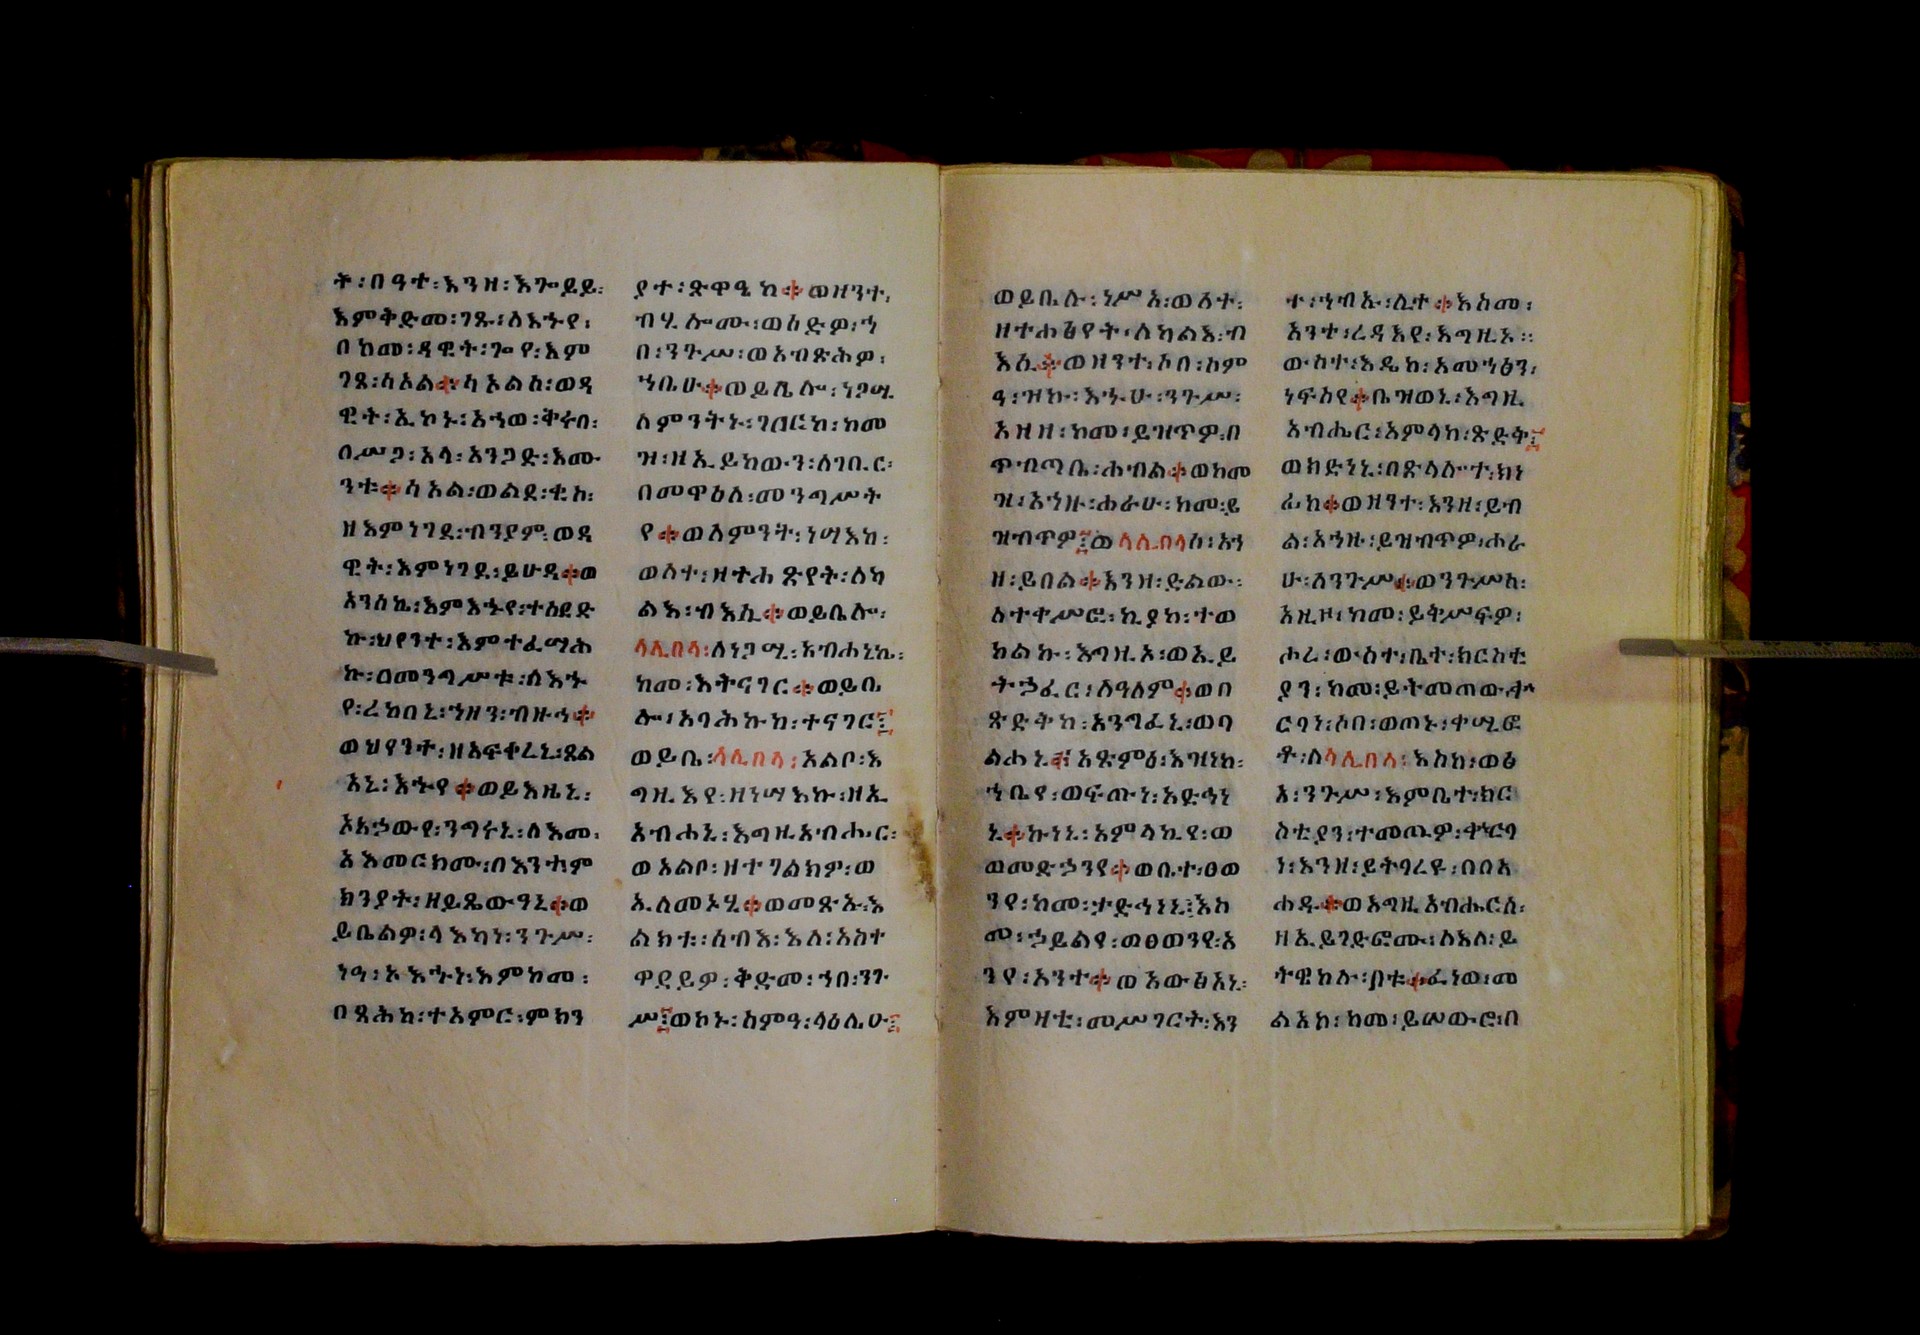 ት፡በዓተ፡እንዘ፡እጐይይ፡
እምቅድመ፡ገጹ፡ለእኁየ፡
በከመ፡ዳዊት፡ጐየ፡እም
ገጸ፡ሳኦል፨ሳኦልሰ፡ወዳ
ዊት፡ኢኮኑ፡አኀወ፡ቅሩበ፡
በሥጋ፡አላ፡አንጋድ፡እሙ
ንቱ፨ሳኦል፡ወልደ፡ቂስ፡
ዘእምነገደ፡ብንያም፡ወዳ
ዊት፡እምነገደ፡ይሁዳ፨ወ
አንሰኬ፡እምእኁየ፡ተሰደድ
ኩ፡ህየንተ፡እምተፈሣሕ
ኩ፡በመንግሥቱ፡ለእኁ
የ፡ረከበኒ፡ኀዘን፡ብዙኅ፨
ወህየንተ፡ዘአፍቀረኒ፡ጸል
አኒ፡እኁየ፨ወይእዜኒ፡
ኦአኃውየ፡ንግሩኒ፡ለእመ፡
አእመርክሙ፡በእንተ፡ም
ክንያት፡ዘይዴውዓኒ፨ወ
ይቤልዎ፡ላእካነ፡ንጉሥ፡
ነዓ፡ኦእኁነ፡እምከመ፡
በጻሕከ፡ተአምር፡ምክን
ያተ፡ጽዋዔከ፨ወዘንተ፡
ብሂሎሙ፡ወሰድዎ፡ኀ
በ፡ንጉሥ፡ወአብጽሕዎ፡
ኀቤሁ፨ወይቤሎ፡ነጋሢ
ለምንትኑ፡ገበርከ፡ከመ
ዝ፡ዘኢይከውን፡ለገቢር፡
በመዋዕለ፡መንግሥት
የ፨ወለምንት፡ነሣእከ፡
ወስተ፡ዘተሐጽየት፡ለካ
ልእ፡ብእሲ፨ወይቤሎ፡
ላሊበላ፡ለነጋሢ፡አብሐኒኬ፡
ከመ፡እትናገር፨ወይቤ
ሎ፡አባሕኩከ፡ተናገር፤
ወይቤ፡ላሊበላ፡አልቦ፡እ
ግዚእየ፡ዘነሣእኩ፡ዘኢ
አብሐኒ፡እግዚአብሔር፡
ወአልቦ፡ዘተገልክዎ፡ወ
ኢለመኑሂ፨ወመጽኡ፡እ
ልክቱ፡ሰብእ፡እለ፡አስተ
ዋደይዎ፡ቅድመ፡ኀበ፡ንጉ
ሥ፤ወኮኑ፡ስምዓ፡ላዕሌሁ፤
ወይቤሉ፡ነሥአ፡ወእተ፡
ዘተሐፅየት፡ለካልእ፡ብ
እሲ፨ወዘንተ፡ሶበ፡ሰም
ዓ፡ዝኩ፡እኁሁ፡ንጉሥ፡
አዘዘ፡ከመ፡ይዝጥዎ፡በ
ጥብጣቤ፡ሐብል፨ወከመ
ዝ፡አኀዙ፡ሐራሁ፡ከመ፡ይ
ዝብጥዎ፤ወላሊበላሰ፡አኀ
ዘ፡ይበል፨እንዘ፡ድልው፡
ለተቀሥፎ፡ኪያከ፡ተወ
ከልኩ፡እግዚኦ፡ወኢይ
ትኃፈር፡ለዓለም፨ወበ
ጽድቅከ፡አንግፈኒ፡ወባ
ልሐኒ፨አጽምዕ፡እዝነከ፡
ኀቤየ፡ወፍጡነ፡አድኅነ
ኒ፨ኩነኒ፡አምላኪየ፡ወ
ወመድኃንየ፨ወቤተ፡ፀወ
ንየ፡ከመ፡ታድኅነኒ፤እስ
መ፡ኃይልየ፡ወፀወንየ፡አ
ንየ፡አንተ፨ወአውፅአኒ፡
እምዛቲ፡መሥገርት፡እን
ተ፡ኀብኡ፡ሊተ፨እስመ፡
አንተ፡ረዳእየ፡እግዚኦ።
ውስተ፡እዴከ፡አመኀፅን፡
ነፍስየ፨ቤዝወኒ፡እግዚ
አብሔር፡አምላከ፡ጽድቅ፤
ወክድነኒ፡በጽላሎተ፡ክነ
ፊከ፨ወዘንተ፡እንዘ፡ይብ
ል፡አኀዙ፡ይዝብጥዎ፡ሐራ
ሁ፡ለንጉሥ፨ወንጉሥሰ፡
አዚዞ፡ከመ፡ይቅሥፍዎ፡
ሖረ፡ውስተ፡ቤተ፡ክርስቲ
ያን፡ከመ፡ይትመጠው፡ቍ
ርባነ፡ሶበ፡ወጠኑ፡ቀሢፎ
ቶ፡ለላሊበላ፡እስከ፡ወፅ
አ፡ንጉሥ፡እምቤተ፡ክር
ስቲያን፡ተመጢዎ፡ቍርባ
ነ፡እንዘ፡ይትባረዩ፡በበአ
ሐዱ፨ወእግዚአብሔርሰ፡
ዘኢይገድፎሙ፡ለእለ፡ይ
ትዌከሉ፡ቦቱ፨ፈነወ፡መ
ልአከ፡ከመ፡ይሠውሮ፡በ